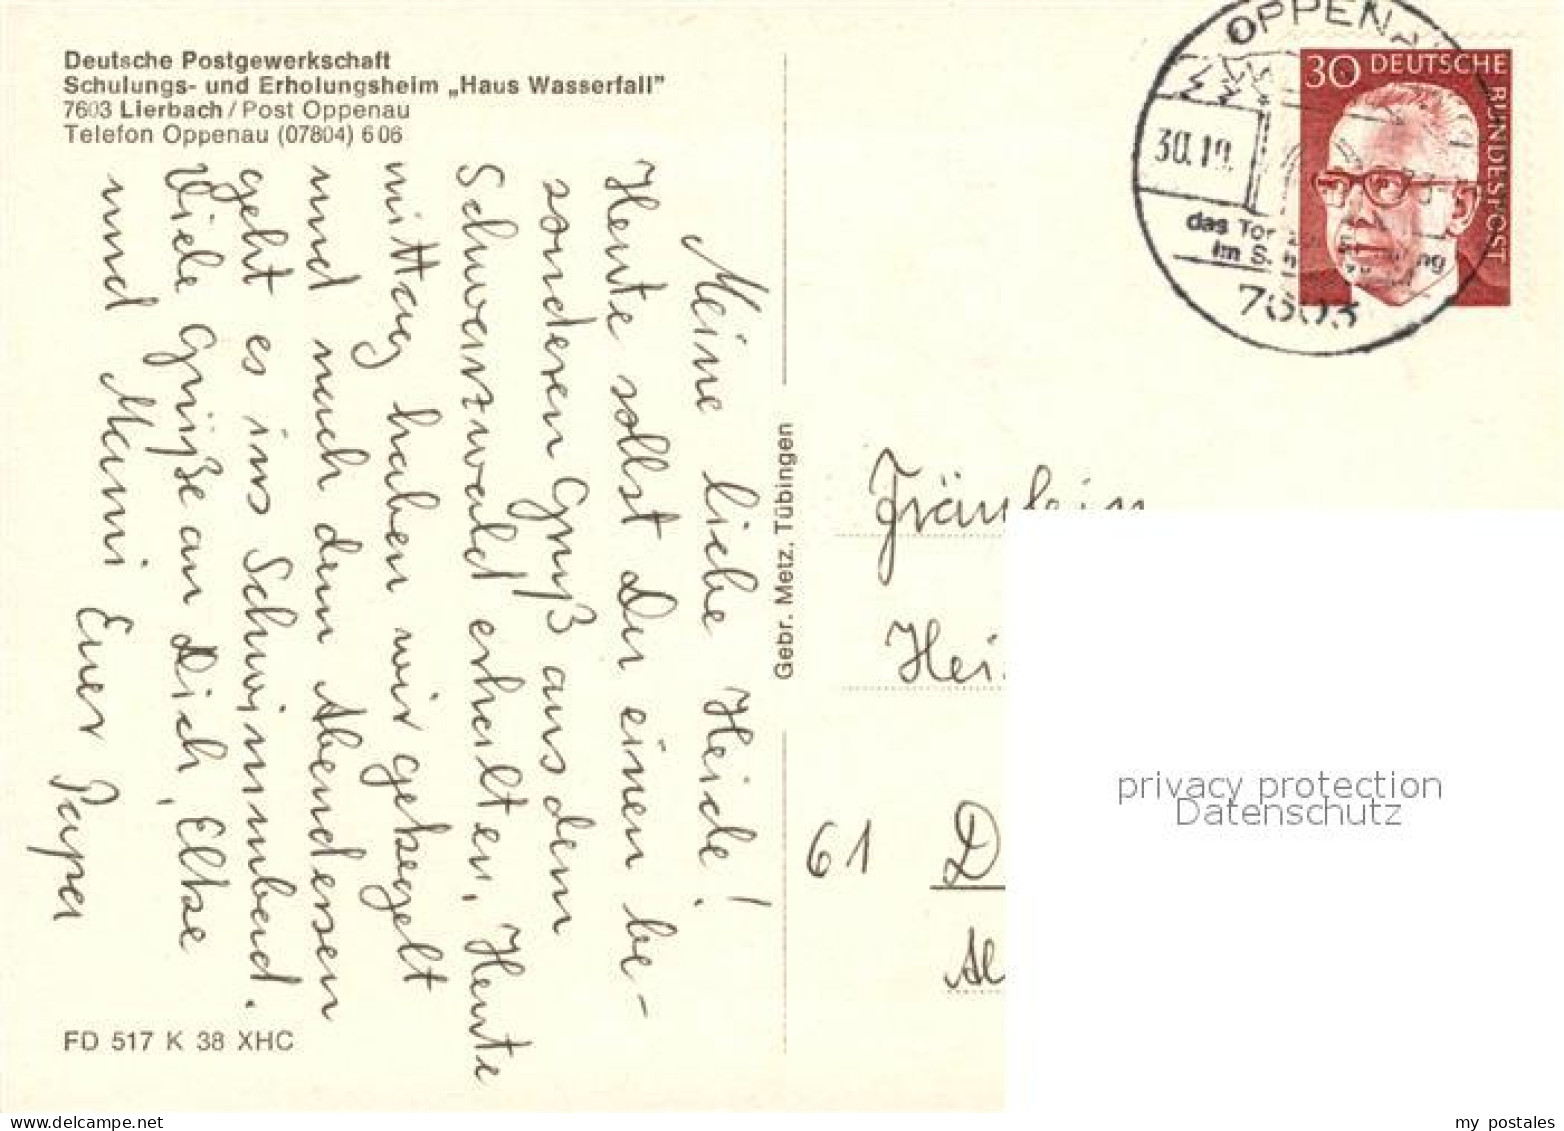 Deutsche Postgewerkschaft
Schulungs- und Erholungsheim „Haus Wasserfall”
7603 Lierbach / Post Oppenau
Telefon Oppenau (07804) 6 06
Meine liebe Heide!
Heute sollst Du einen be-
sonderen Gruß aus dem
Schwarzwald erhalten. Heute
mittag haben wir gekegelt
und nach dem Abendessen
geht es ins Schwimmbad.
Viele Grüße an Dich, Elke
und Mami Euer Papa
FD 517 K 38 XHC
Gebr. Metz, Tübingen
OPPENA
30.10.
das Tor
im
7603
30 DEUTSCHE
BUNDESPOST
Fräulein
Hei
61 D
Al
privacy protection
Datenschutz
my postales